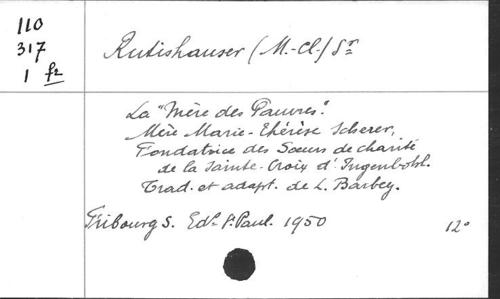 110
317
1 fz
Rutishauser (M.-Cl.) Sr
La "Mère des Pauvres".
Mère Marie-Thérèse Scherer,
Fondatrice des Soeurs de charité
de la Sainte-Croix d'Ingenbohl.
Trad. et adapt. de L. Barbey.
Fribourg S. Edns St. Paul. 1950 12°